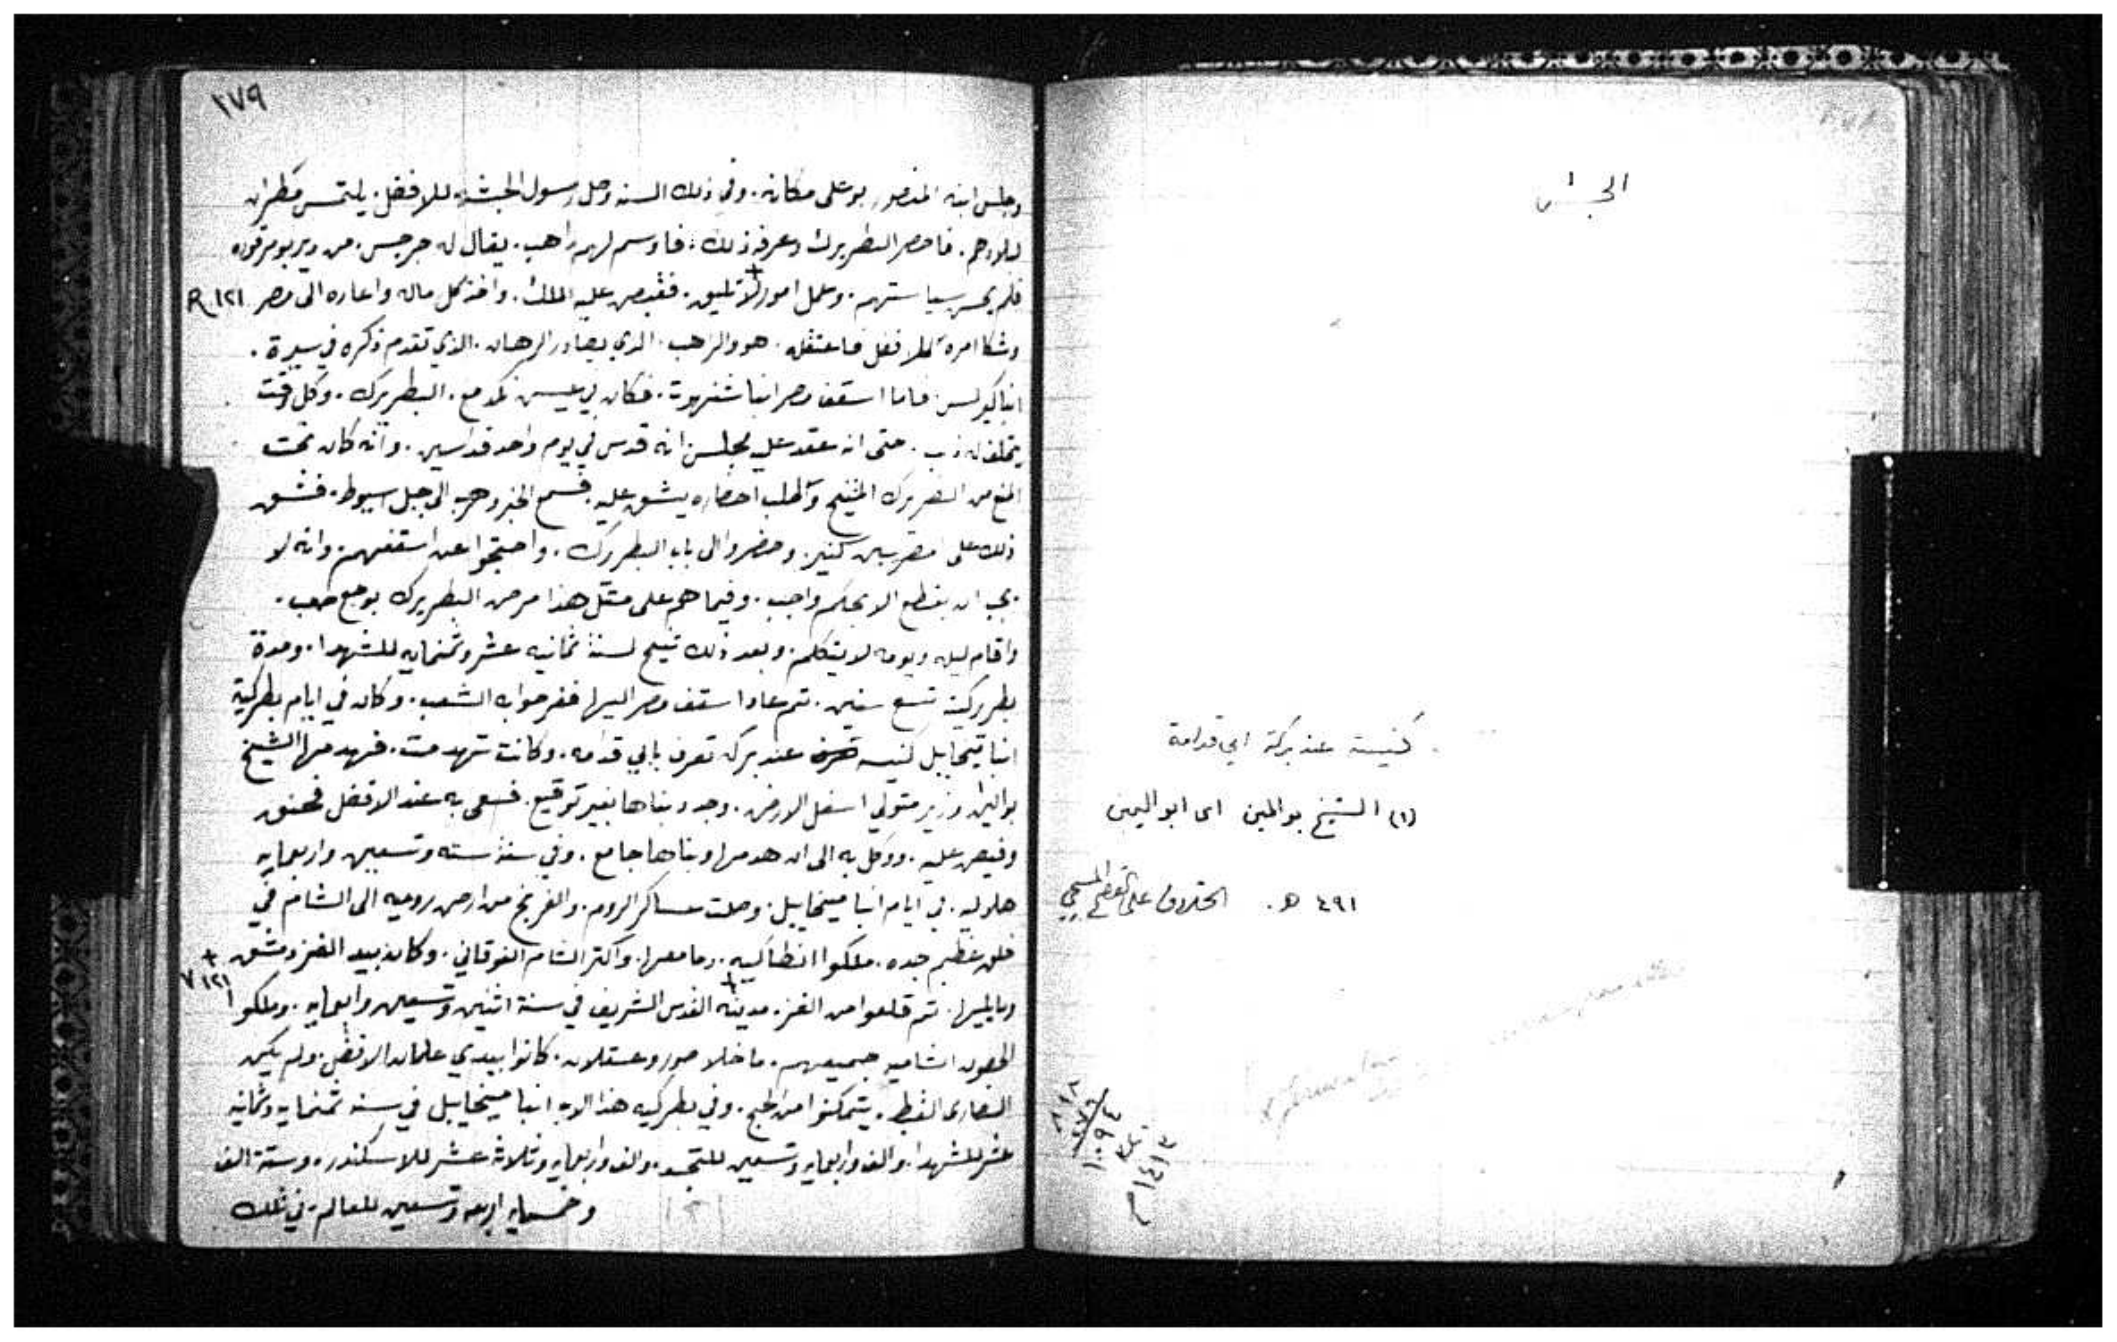 ١٧٩
وجلس ابنه المنصور بوعلى مكانه. وفي ذلك السنه وصل رسول الحبشه للافضل. يلتمس مطران
لبلادهم. فاحضر البطريرك وعرفه ذلك. فاوسم لهم راهب. يقال له جرجس. من دير بومقوره
فلم يحسن سياستهم. وعمل امور لا تليق. فقبض عليه الملك. واخذ كل ماله واعاده الى مصر R ١٢١
وشكا امره للافضل فاعتقله. هو والراهب الذي يصادر الرهبان. الذي تقدم ذكره في سيرة.
انبا كيرلس. فاما اسقف مصر انبا شنهوت. فكان في عيش نكد مع. البطريرك. وكل وقت
يتخلف له ذنب. حتى انه عقد عليه مجلس انه قدس في يوم واحد قداسين. وانه كان تحت
المنع من البطريرك المتنيح وطلب احضاره يشق عليه. فسمع الخبر وهرب الى جبل اسيوط. فشق
ذلك على المصريين كثير. وحضروا الى باب البطريرك. واحتجوا عن اسقفهم. وانه لا
يجب ان يقطع الا بحكم واجب. وفيما هم على مثل هذا مرض البطريرك بوجع صعب.
واقام ليله ويومه لا يتكلم. وبعد ذلك تنيح لسنة ثمانيه عشر وثمنمايه للشهدا. ومدة
بطركيته تسع سنين. ثم عاد اسقف مصر اليها ففرحوا به الشعب. وكان في ايام بطركية
انبا ميخاييل كنيسه عند بركه تعرف بابي قدامه. وكانت تهدمت. فهدمها الشيخ
بواليمن وزير متولي اسفل الارض. وجدد بناها بغير توقيع. فسعى به عند الافضل فحنق
وقبض عليه. ووكل به الى ان هدمها وبناها جامع. وفي سنة سته وتسعين واربعمايه
هلاليه. في ايام انبا ميخاييل. وصلت عساكر الروم. والفرنج من ارض روميه الى الشام في
خلق عظيم جده. ملكوا انطاكيه. وما معها. واكثر الشام الفوقاني. وكان بيد الغز دمشق
وما يليها. ثم قلعوا من الغز. مدينة القدس الشريف في سنة اثنين وتسعين واربعمايه. وملكوا
V ١٢١
الحصون الشاميه جميعهم. ما خلا صور وعسقلان. كانوا بيدي غلمان الافضل. ولم يكن
النصارى القبط. يتمكنوا من الحج. وفي بطركيه هذا الاب انبا ميخاييل في سنه ثمنمايه وثمانيه
عشر للشهدا. والف واربعمايه وتسعين للتجسد. والف واربعمايه وثلاثة عشر للاسكندره وستة الف
وخمسمايه اربعه وتسعين للعالم. في تلك
الحبش
كنيسة عند بركة ابي قدامة
(١) الشيخ بواليمن اى ابو اليمن
٤٩١ هـ.
٨١٨
٢٧٦
١٠٩٤
١٤١٣ م